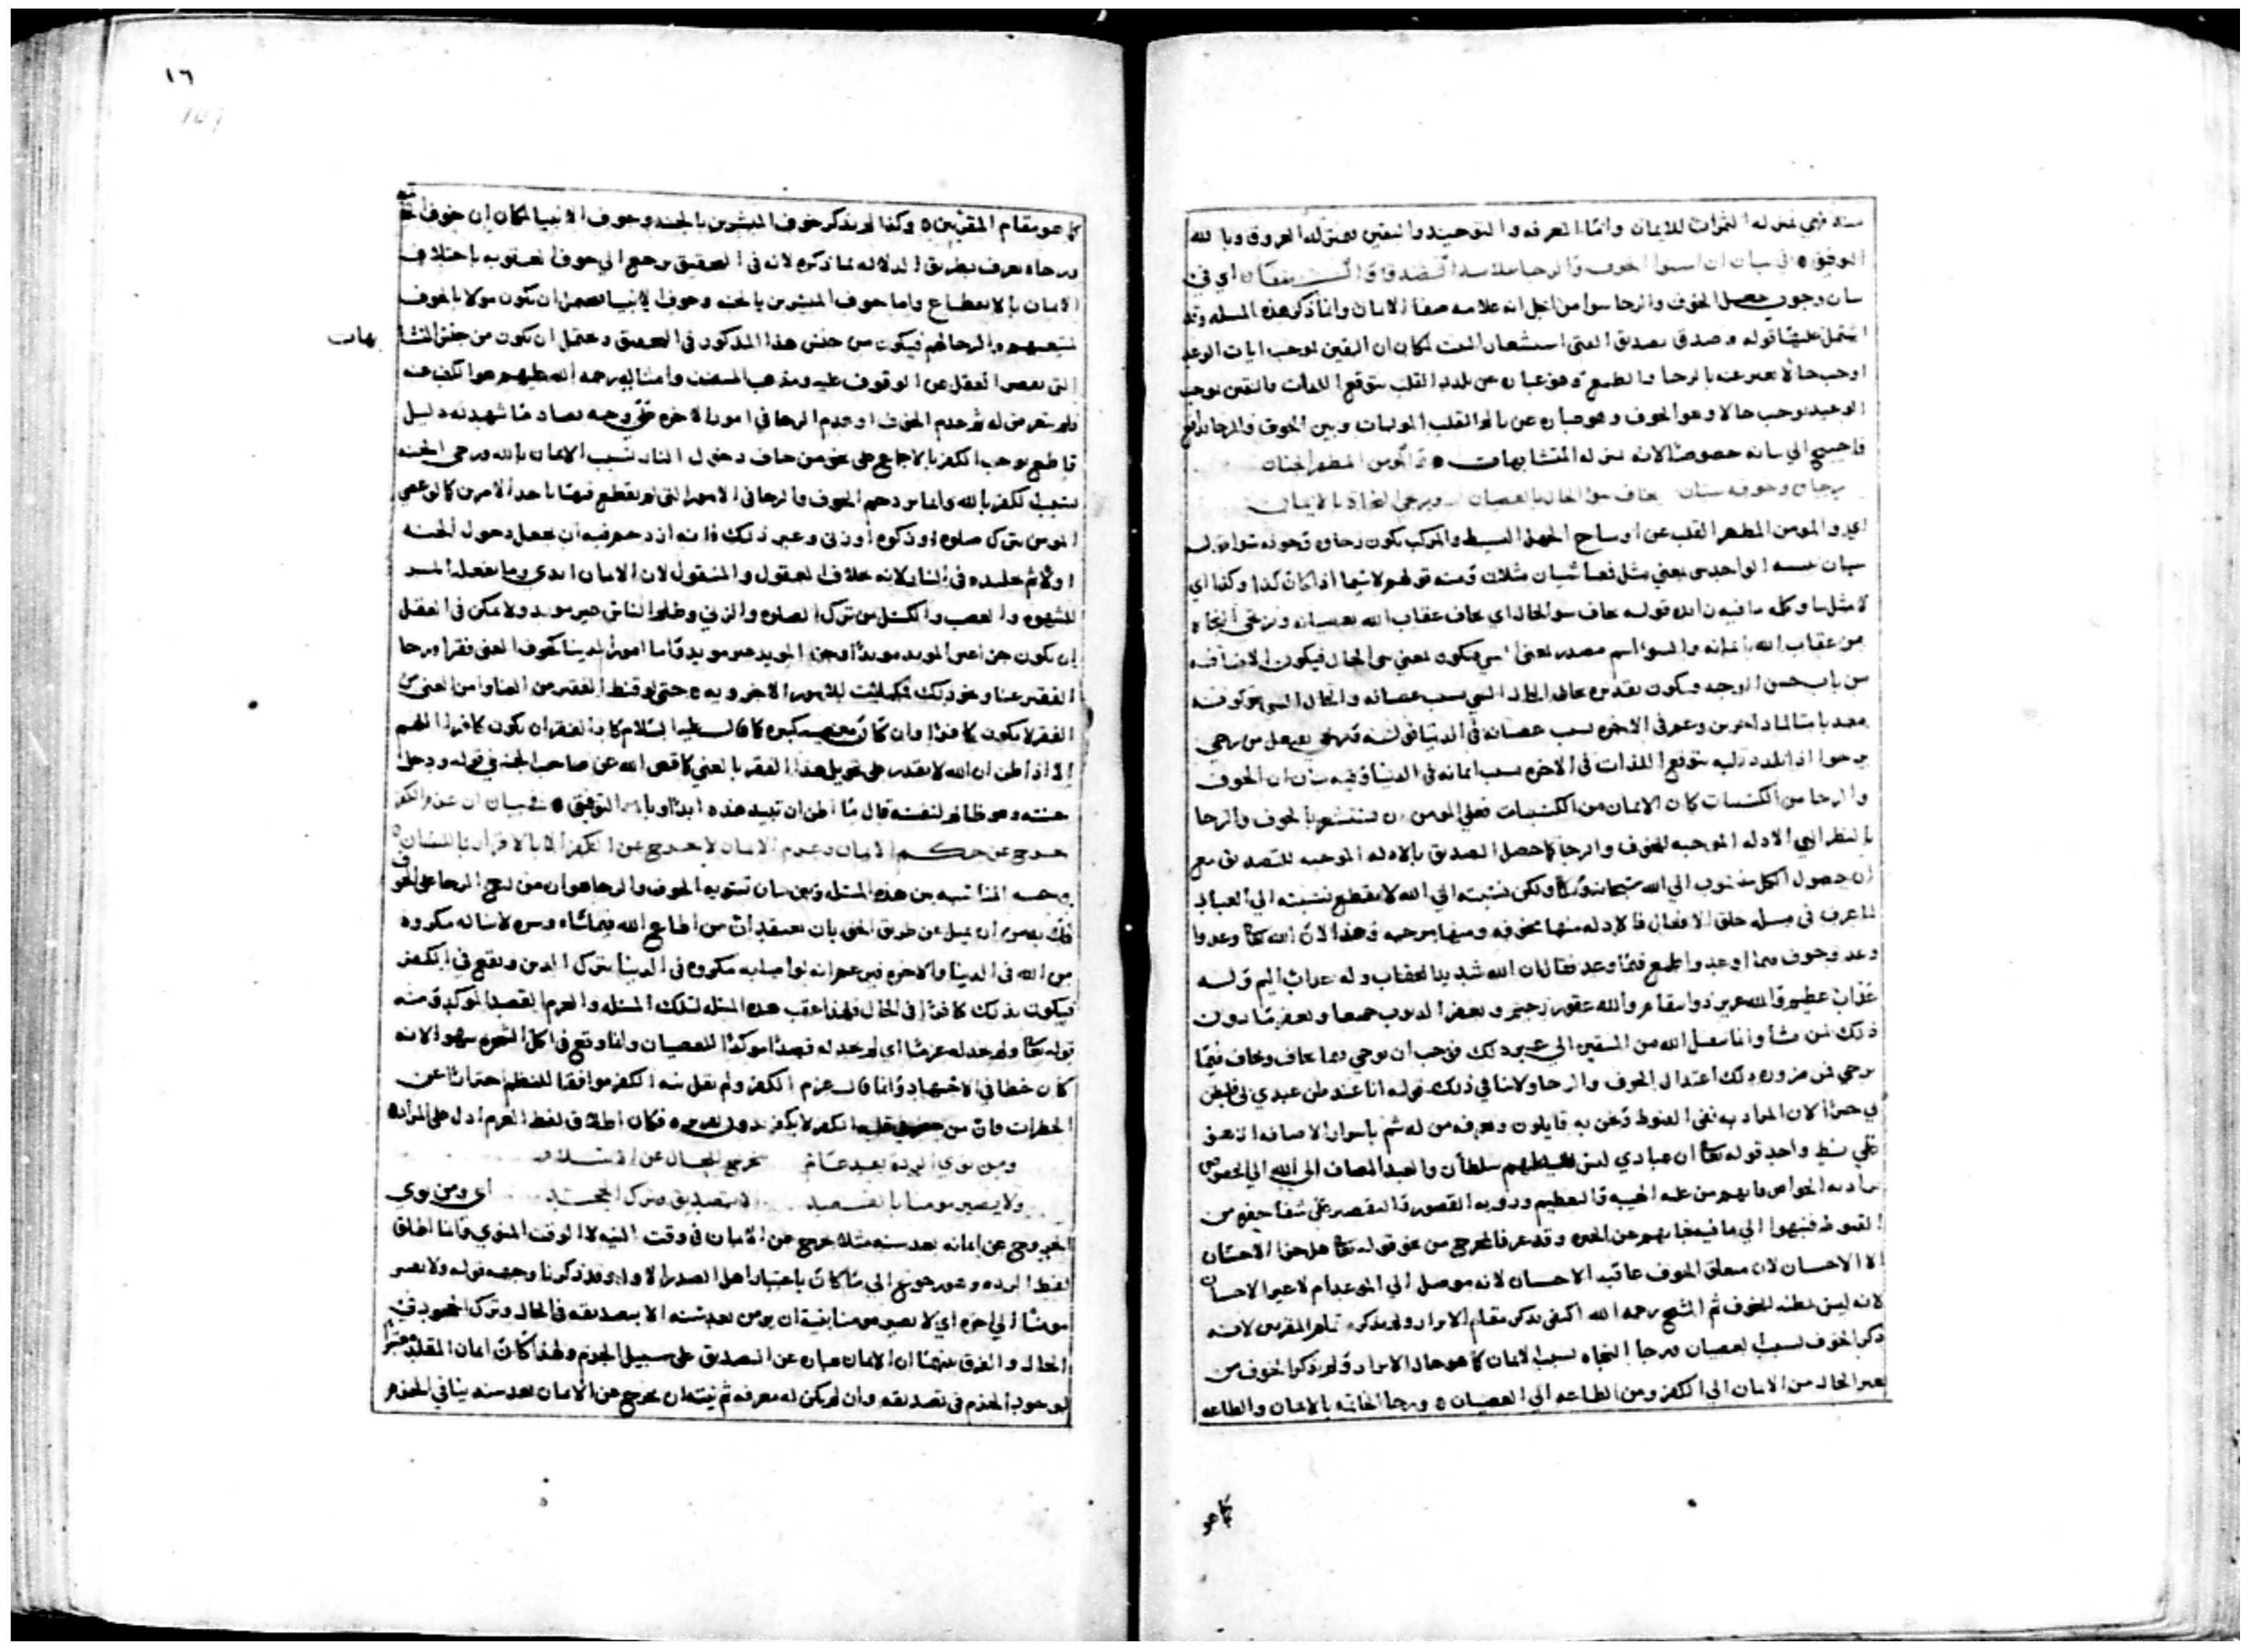 منه فهي بمنزله الثمرات للايمان واما المعرفه والتوحيد واليقين بمنزله العروق وبالله
التوفيق في بيان ان استوا الخوف والرجا علامه الصدق اي في
بيان وجوب الخوف والرجا سوا من اجل انه علامه صفا الايمان وانما ذكر هذه المسله
اشتمل عليها قوله وصدق تصديق الفتى استشعار لمكان ان اليقين لوجب ايات الوعد
اوجب حالا يعبر عنه بالرجا والطمع وهو عباره عن تلذد القلب بتوقع اللذات واليقين بوجب
الوعيد يوجب حالا وهو الخوف وهو عباره عن تالم القلب وبين الخوف والرجا تدافع
فاحتيج الي بيانه خصوصا لانه بمنزله المتشابهات والمومن المطهر الجنان
رجاوه وخوفه سيان يخاف سو الحال بالعصيان ويرجى النجاة بالايمان
اي والمومن المطهر القلب عن اوساخ الجهل البسيط والمركب يكون رجاوه وخوفه سوا
سيان تثنيه الواحد سي بمعني مثل فمعنا سيان مثلان ومنه قولهم لاسيما اذا كان كذا وكذا اي
لا مثل ما وكلمه ما فيه زايده قوله يخاف سو الحال اي يخاف عقاب الله بعصيانه ويرتجى النجاه
من عقاب الله بايمانه والسو اسم مصدر بمعنى فيكون بمعني سي الحال فيكون الاضافه
من باب حسن الوجه ويكون تقديره يخاف الحال السي بسبب عصيانه والحال السي هو كونه
في الاخره بسبب عصيانه في الدنيا
يرجوا اذا تلذد قلبه بتوقع اللذات في الاخره بسبب ايمانه في الدنيا وفيه بيان ان الخوف
والرجا من الكسبيات كما ان الايمان من الكسبيات فعلي المومن ان يستشعر بالخوف والرجا
بالنظر الي الادله الموجبه للخوف والرجا كما حصل التصديق بالادله الموجبه للتصديق مع
ان حصول الكل منسوب الي الله سبحانه وتعالى ولكن نسبته الي الله لا يقطع نسبته الي العباد
لما عرف في مسله خلق الافعال فالادله منها مخوفه ومنها مرجيه وهذا لان الله تعالى وعد واوعد
وخوف مما اوعد واطمع فيما وعد فقال ان الله شديد العقاب وله عذاب اليم وله
عذاب عظيم والله عزيز ذو انتقام والله غفور رحيم ويغفر الذنوب جميعا ويغفر ما دون
ذلك لمن يشا وانما يتقبل الله من المتقين الي غير ذلك فوجب ان يرجي مما يخاف ويخاف فيما
يرجي فمن ضروره ذلك اعتدال الخوف والرجا ولا ينافي ذلك قوله انا عند ظن عبدي بي فليظن
بي خيرا لان المراد به نفي القنوط ونحن به قايلون ويعرفه من له شم باسرار الاضافه
علي نمط واحد قوله تعالى ان عبادي ليس لك عليهم سلطان والعبد المضاف الي الله الي المخصوص
يراد به الخواص فانهم من غلبه الهيبه والتعظيم ورويه القصور والتقصير على شفا حفير من
القنوط فنبهوا الي ما فيه نجاتهم عن الحيره وقد عرف المخرج من نحو قوله تعالى هل جزا الاحسان
الا الاحسان لان متعلق الخوف عاقبه الاحسان لانه موصل الي الموعد لا عين الاحسان
لانه ليس بمظنه للخوف ثم الشيخ رحمه الله اكتفى بذكر مقام الابرار ولم يذكر مقام المقربين لانه
ذكر الخوف بسبب العصيان ورجا النجاه بسبب الايمان كما هو حال الابرار ولم يذكر الخوف من
تغير الحال من الايمان الي الكفر ومن الطاعه الي العصيان ورجا الخاتمه بالايمان والطاعه
كما هو
١٦
كما هو مقام المقربين وكذا لم يذكر خوف المبشرين بالجنه وخوف الانبيا لمكان ان خوف
ورجاه يعرف بطريق الدلاله مما ذكره لانه في التحقيق يرجع الي خوف العقوبه باختلاف
الايمان بالانقطاع واما خوف المبشرين بالجنه وخوف الانبيا فيحتمل ان يكون مولا بالخوف
لمتبعيهم والرجا لهم فيكون من جنس هذا المذكور في التحقيق ويحتمل ان يكون من جنس المتشا
بهات
التي يقصر العقل عن الوقوف عليه ومذهب المصنف وامثاله رحمه الله عليهم هو الكف عنه
ولم يتعرض له ثم عدم الخوف او عدم الرجا في امور الاخره في وجه يصاد ما شهد به دليل
قاطع يوجب الكفر بالاجماع على نحو من خاف دخول النار بسبب الايمان بالله ورجي الجنه
بسبب الكفر بالله وانما يزدحم الخوف والرجا في الامور التي لم يقطع فيها باحد الامرين كالوعي
المومن بترك صلوه او زكوه او زنى وغير ذلك فانه ازدحم فيه ان يجعل دخول الجنه
اولا ثم تخليده في النار لانه خلاف المعقول والمنقول لان الايمان ابدي وما يفعله المر
للشهوه والغضب والكسل من ترك الصلوه والزنى وظلم الناس غير موبد ولا يمكن في العقل
ان يكون جزا غير الموبد موبدا وجزا الموبد غير موبد فاما امور الدنيا كخوف الغني فقرا ورجا
الفقير غنا ونحو ذلك فليست للامور الاخرويه حتى لو قنط الفقير من الغنا وامن الغني من
الفقر لا يكون كافرا وان كان معصيه كبيره كما قال عليه السلام كاد الفقر ان يكون كافرا اللهم
الا اذا ظن ان الله لا يقدر على تحويل هذا الفقر بالغني كما قص الله عن صاحب الجنه في قوله ودخل
جنته وهو ظالم لنفسه قال ما اظن ان تبيد هذه ابدا وبالله التوفيق في بيان ان عزم الكفر
خروج عن حكم الايمان وعزم الايمان لا يخرج عن الكفر الا بالاقرار باللسان
وجه المناسبه بين هذه المسله وبين بيان تسويه الخوف والرجا هو ان من رجح الرجا على الخو
ف
من الله في الدنيا والاخره فمن عم انه لو اصابه مكروه في الدنيا يترك الدين ويقع في الكفر
فيكون بذلك كافرا في الحال فلهذا عقب هذه المسله لتلك المسله والعزم القصد الموكد ومنه
قوله تعالى ولم نجد له عزما اي لم نجد له قصدا موكدا للعصيان وانما وقع في اكل الشجره سهوا لانه
كان خطا في الاجتهاد وانما قال عزم الكفر ولم يقل نيه الكفر موافقا للنظم احترازا عن
الخطرات فان من خطر على قلبه الكفر لا يكفر بدون العزم فكان اطلاق لفظ العزم ادل على المراد
ومن نوى الردة بعد عام يخرج للحال عن الاسلام
ولا يصير مومنا بالقصد الا بتصديق وترك الجحد اي ومن نوي
الخروج عن ايمانه بعد سنه مثلا خرج عن الايمان في وقت النيه لا الوقت المنوي وانما اطلق
لفظ الرده وهو رجوع الي ما كان باعتبار اهل الصدر الاول وقد ذكرنا وجهه قوله ولا يصير
مومنا الي اخره اي لا يصير مومنا بنيه ان يومن بعد سنه الا بتصديقه في الحال وترك الجحود في
الحال والفرق بينهما ان الايمان عباره عن التصديق على سبيل الجزم ولهذا كان ايمان المقلد معتبرا
لوجود الجزم في تصديقه وان لم يكن له معرفه ثم نيته ان يخرج عن الايمان بعد سنه ينافي الجزم